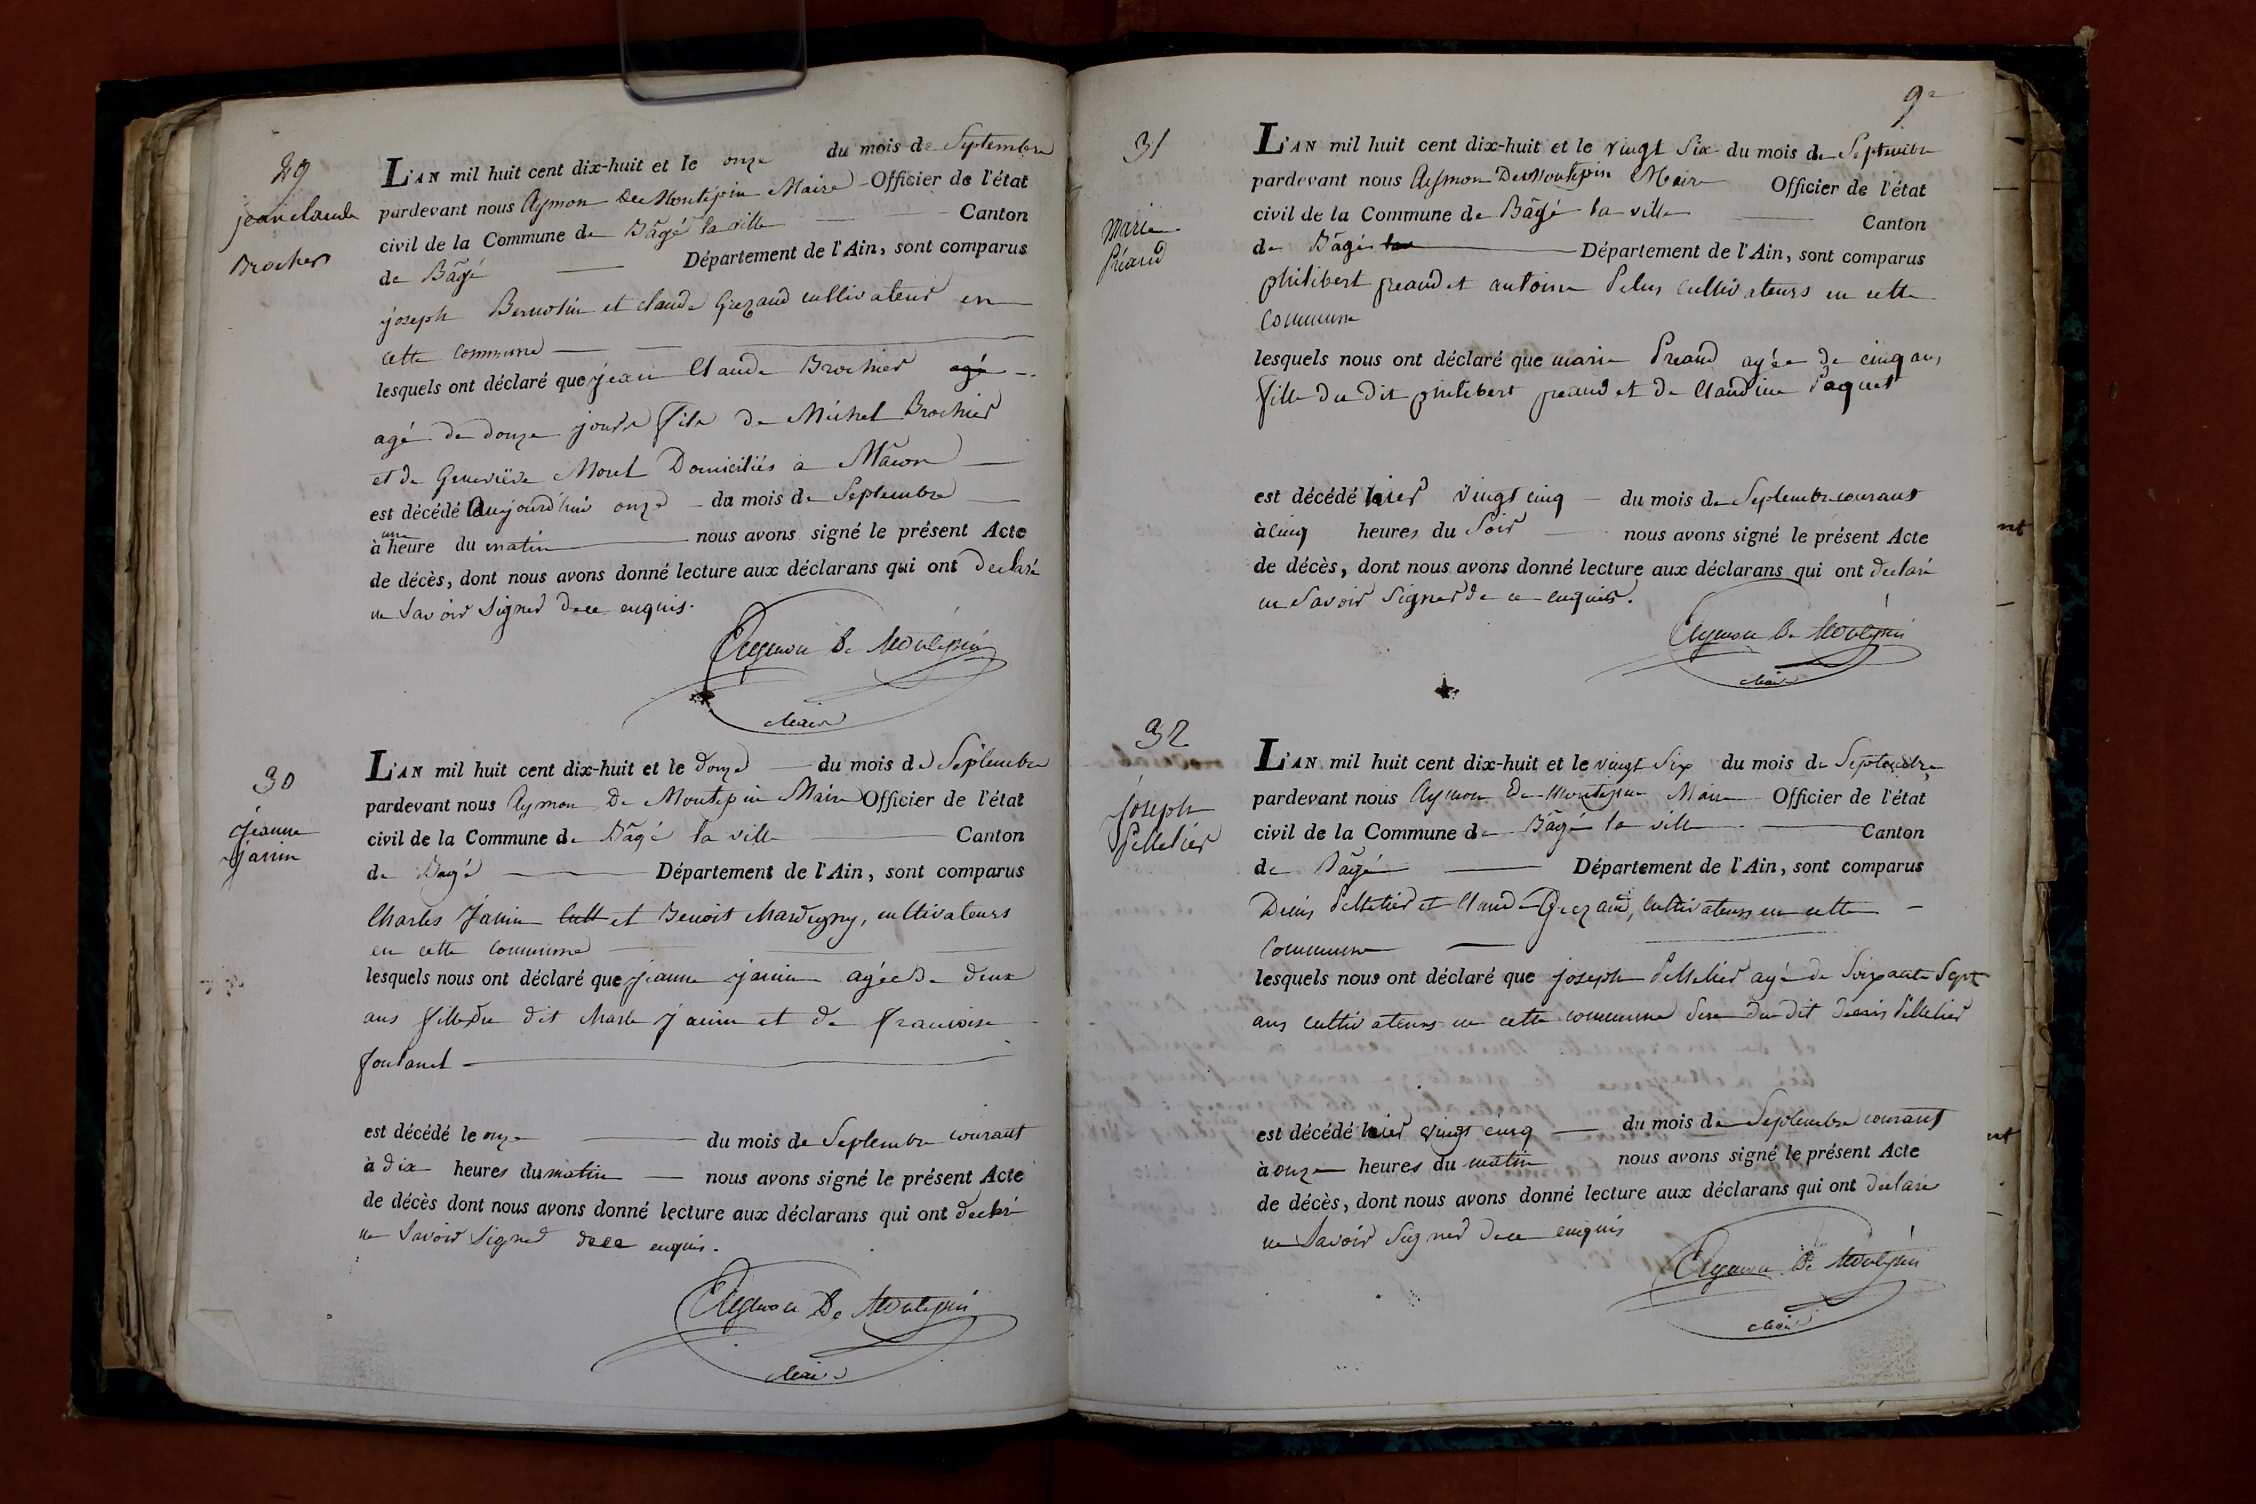 29
jean claude
Brochier
L'AN mil huit cent dix-huit et le onze du mois de Septembre
pardevant nous Aymon De Montépin Maire Officier de l'état
civil de la Commune de Bâgé la ville Canton
de Bâgé Département de l'Ain, sont comparus
joseph et claude Grezaud cultivateurs en
cette commune
lesquels ont déclaré que jean Claude Brochier agé
agé de douze jours fils de Michel Brochier
et de Geneviève Morel Domiciliés à Mâcon
est décédé aujourd'hui onze du mois de Septembre
à une heure du matin nous avons signé le présent Acte
de décès, dont nous avons donné lecture aux déclarans qui ont declaré
ne Savoir Signer de ce enquis.
Aymon De Montépin
Maire
30
Jeanne
janin
L'AN mil huit cent dix-huit et le douze du mois de Septembre
pardevant nous Aymon De Montepin Maire Officier de l'état
civil de la Commune de Bâgé la ville Canton
de Bagé Département de l'Ain, sont comparus
Charles Janin cult et Benoit Mardigny, cultivateurs
en cette commune
lesquels nous ont déclaré que jeanne janin agée de deux
ans fille du dit Charle Janin et de françoise
foutanel
est décédé le onze du mois de Septembre courant
à dix heures du matin nous avons signé le présent Acte
de décès dont nous avons donné lecture aux déclarans qui ont declaré
ne Savoir Signer de ce enquis.
Aymon De Montépin
Maire
9
31
Marie
Préaud
L'AN mil huit cent dix-huit et le vingt Six du mois de Septembre
pardevant nous Aymon De Montépin Maire Officier de l'état
civil de la Commune de Bâgé la ville Canton
de Bâgé la Département de l'Ain, sont comparus
philibert preaud et antoine Pelus cultivateurs en cette
Commune
lesquels nous ont déclaré que marie Preaud agée de cinq ans
fille du dit philibert preaud et de Claudine Paquet
est décédé hier vingt cinq du mois de Septembre courant
à cinq heures du Soir nous avons signé le présent Acte
de décès, dont nous avons donné lecture aux déclarans qui ont declaré
ne Savoir Signer de ce enquis.
Aymon De Montépin
Maire
32
Joseph
Pelletier
L'AN mil huit cent dix-huit et le vingt Six du mois de Septembre
pardevant nous Aymon De Montepin Maire Officier de l'état
civil de la Commune de Bâgé la ville Canton
de Bâgé Département de l'Ain, sont comparus
Denis Pelletier et Claude Grezaud, Cultivateurs en cette
Commune
lesquels nous ont déclaré que joseph Pelletier agé de Soixante Sept
ans cultivateurs en cette commune Pere du dit denis Pelletier
est décédé hier vingt cinq du mois de Septembre courant
à onze heures du matin nous avons signé le présent Acte
de décès, dont nous avons donné lecture aux déclarans qui ont declaré
ne Savoir Signer de ce enquis
Aymon De Montépin
Maire